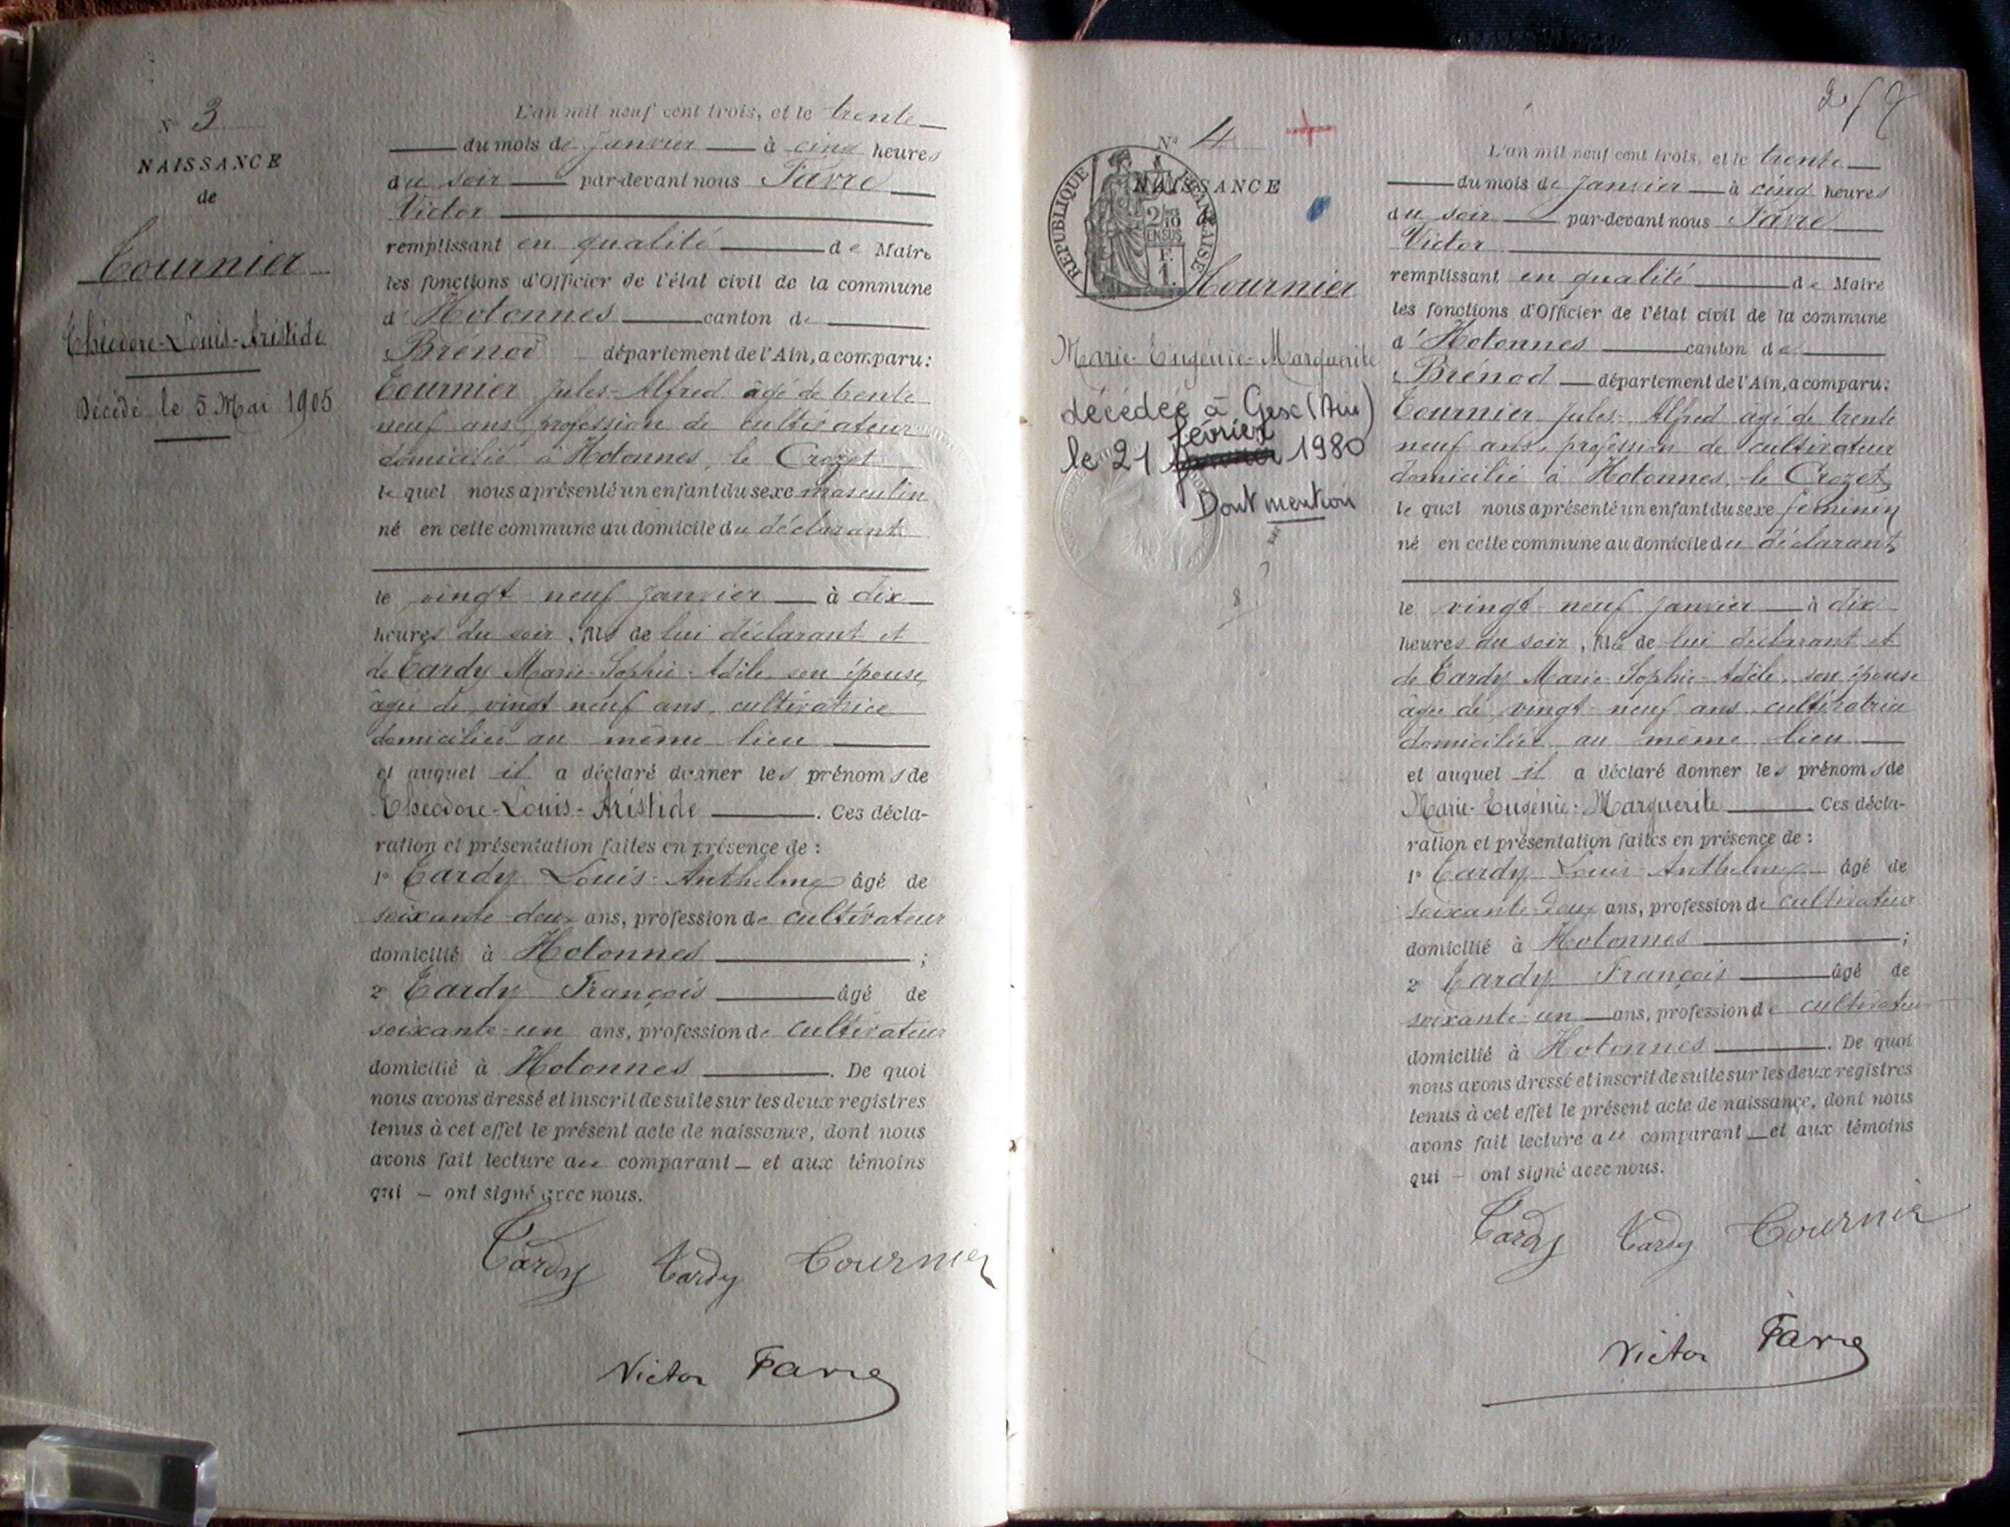 N° 3
NAISSANCE
de
Tournier
Théodore-Louis-Aristide
Décédé le 5 Mai 1905
L'an mil neuf cent trois, et le trente
du mois de janvier à cinq heures
du soir par-devant nous Favre
Victor
remplissant en qualité de Maire
les fonctions d'Officier de l'état civil de la commune
d'Hotonnes canton de
Brénod département de l'Ain, a comparu:
Tournier Jules-Alfred âgé de trente
neuf ans, profession de cultivateur
domicilié à Hotonnes, le Crozet
lequel nous a présenté un enfant du sexe masculin
né en cette commune au domicile du déclarant
le vingt neuf janvier à dix
heures du soir, fils de lui déclarant et
de Tardy Marie-Sophie-Adèle, son épouse,
âgée de vingt neuf ans, cultivatrice
domiciliée au même lieu
et auquel il a déclaré donner les prénoms de
Théodore-Louis-Aristide. Ces décla-
ration et présentation faites en présence de :
1° Tardy Louis-Anthelme âgé de
soixante-deux ans, profession de cultivateur
domicilié à Hotonnes ;
2° Tardy François âgé de
soixante-un ans, profession de cultivateur
domicilié à Hotonnes. De quoi
nous avons dressé et inscrit de suite sur les deux registres
tenus à cet effet le présent acte de naissance, dont nous
avons fait lecture au comparant et aux témoins
qui – ont signé avec nous.
Tardy Tardy Tournier
Victor Favre
N° 4
REPUBLIQUE FRANÇAISE
2/10 EN SUS
F. 1.
NAISSANCE
de
Tournier
Marie-Eugénie-Marguerite
décédée à Gex (Ain)
février
le 21 janvier 1980
Dont mention
L'an mil neuf cent trois, et le trente
du mois de janvier à cinq heures
du soir par-devant nous Favre
Victor
remplissant en qualité de Maire
les fonctions d'Officier de l'état civil de la commune
d'Hotonnes canton de
Brénod département de l'Ain, a comparu:
Tournier Jules-Alfred âgé de trente
neuf ans, profession de cultivateur
domicilié à Hotonnes, le Crozet
lequel nous a présenté un enfant du sexe féminin
né en cette commune au domicile du déclarant
le vingt neuf janvier à dix
heures du soir, fille de lui déclarant et
de Tardy Marie-Sophie-Adèle, son épouse
âgée de vingt-neuf ans, cultivatrice
domiciliée au même lieu
et auquel il a déclaré donner les prénoms de
Marie-Eugénie-Marguerite Ces décla-
ration et présentation faites en présence de :
1° Tardy Louis-Anthelme âgé de
soixante-deux ans, profession de cultivateur
domicilié à Hotonnes ;
2° Tardy François âgé de
soixante-un ans, profession de cultivateur
domicilié à Hotonnes. De quoi
nous avons dressé et inscrit de suite sur les deux registres
tenus à cet effet le présent acte de naissance, dont nous
avons fait lecture au comparant et aux témoins
qui – ont signé avec nous.
Tardy Tardy Tournier
Victor Favre